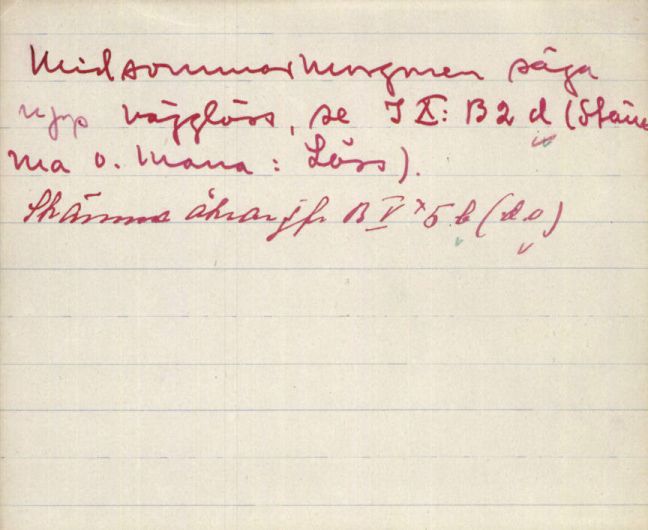 Midsommarmorgonen säga
upp vägglöss, se I X: B2 d (Stäm
ma o. mana: Löss).
Skämma åkrar jfr B V 5 b (do)